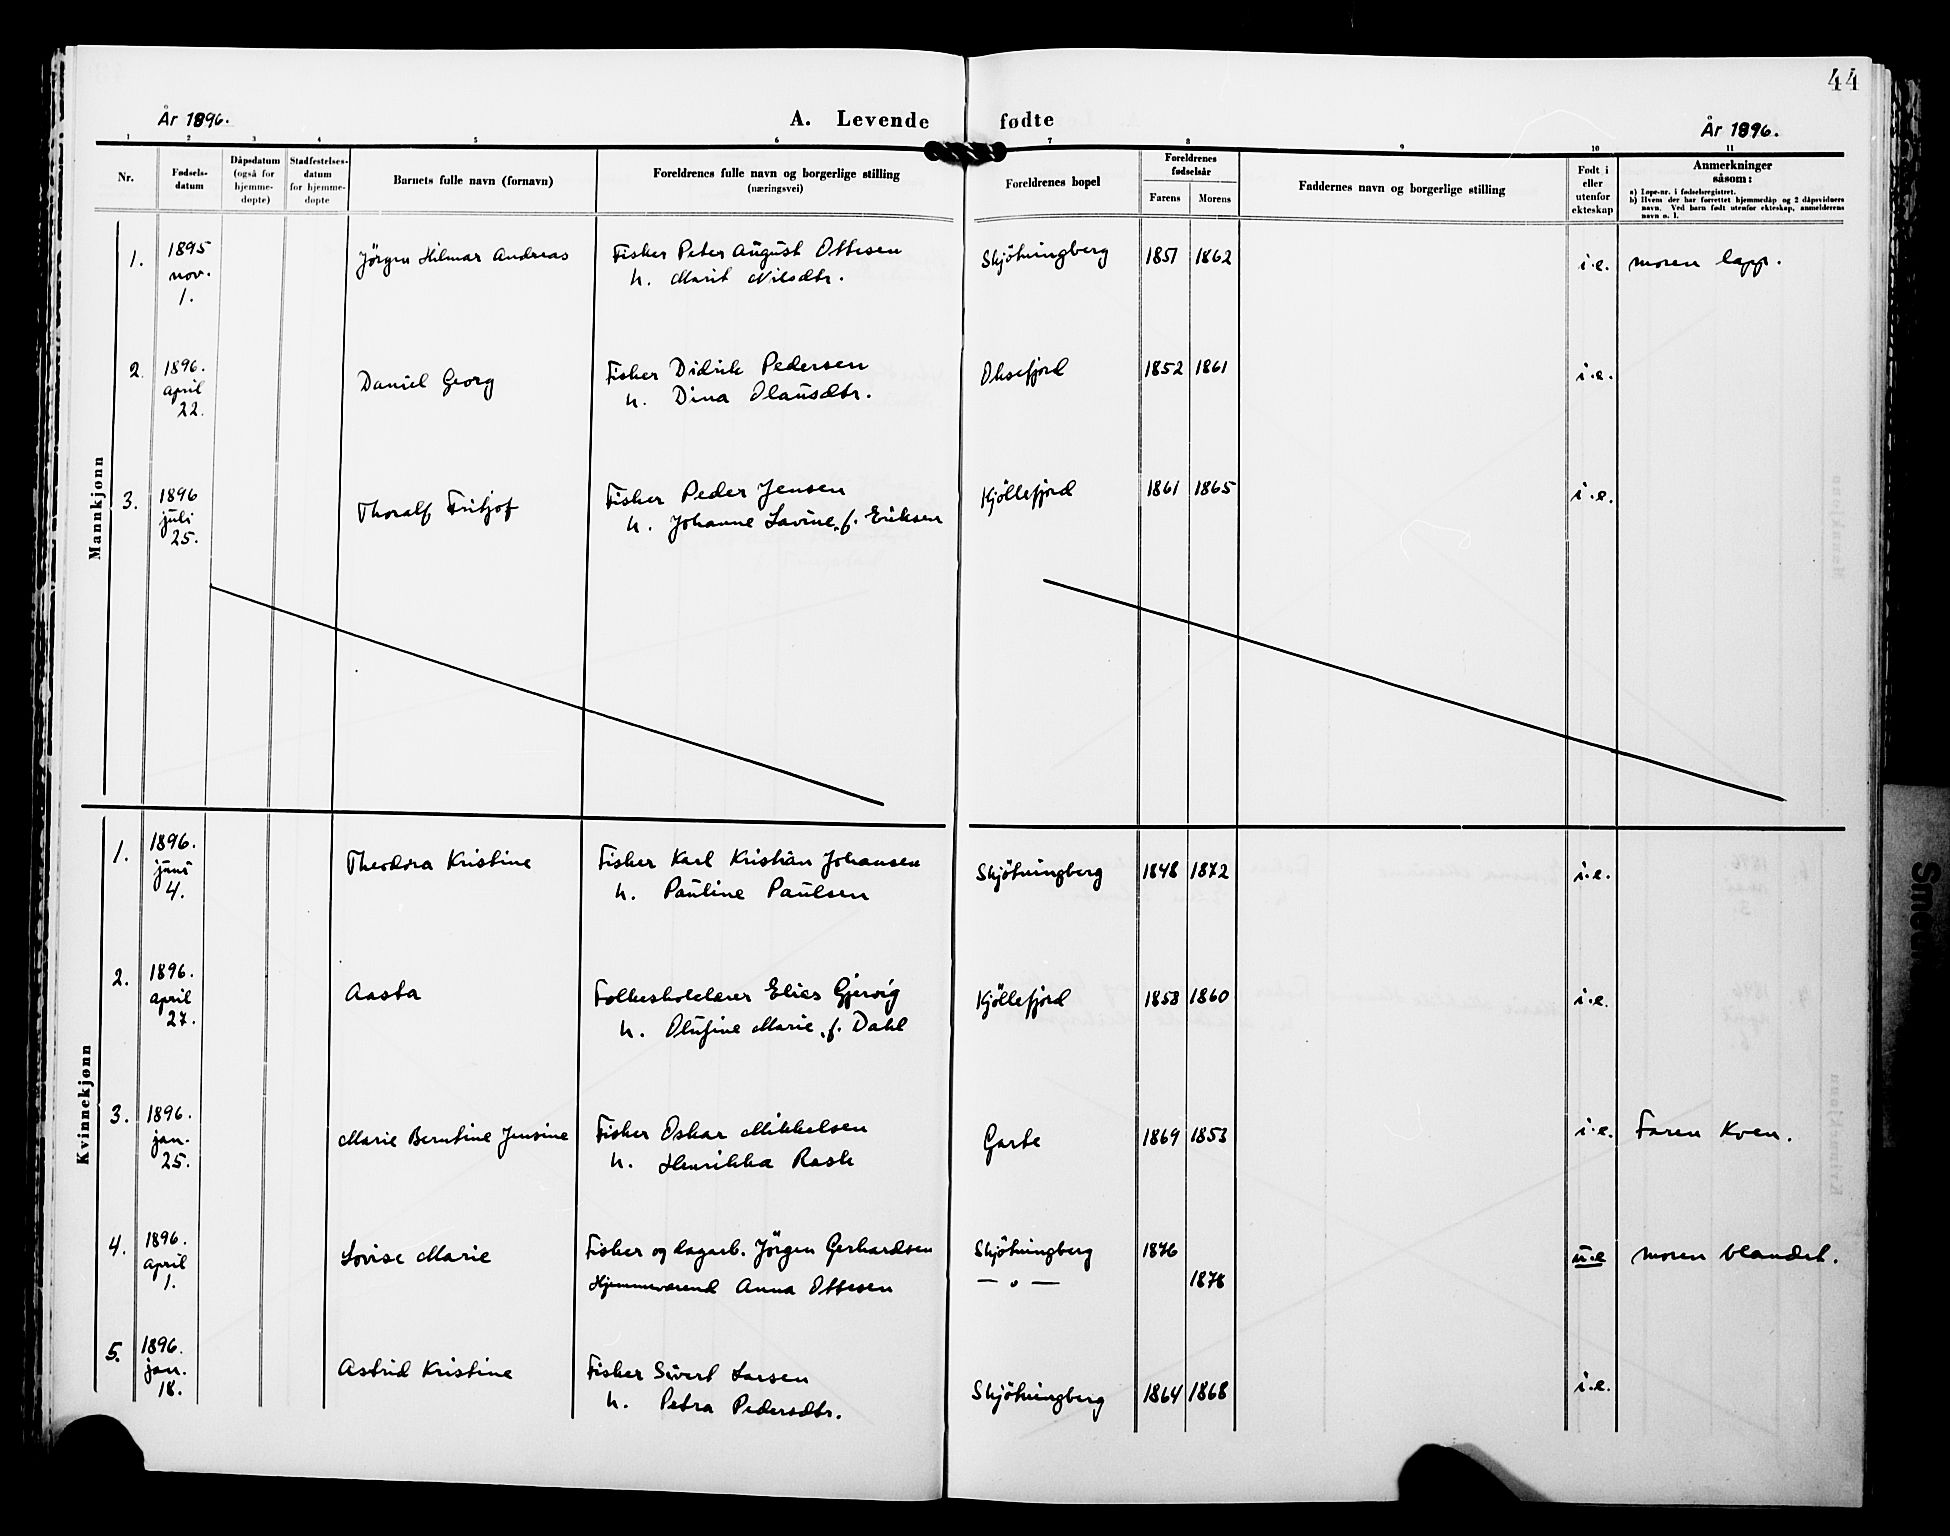 44
År 1896.
A. Levende
fødte
År 1896.
1 2 3 4 5 6 7 8 9 10 11
Nr.
Fødsels-
datum
Dåpsdatum
(også for
hjemme-
døpte)
Stadfestelses-
datum
for hjemme-
døpte
Barnets fulle navn (fornavn)
Foreldrenes fulle navn og borgerlige stilling
(næringsvei)
Foreldrenes bopel
Foreldrenes
fødselsår
Farens Morens
Faddernes navn og borgerlige stilling
Født i
eller
utenfor
ekteskap
Anmerkninger
såsom:
a) Løpe-nr. i fødselsregistret.
b) Hvem der har forrettet hjemmedåp og 2 dåpsvidners
navn. Ved barn født utenfor ekteskap, anmelderens
navn o. l.
Mannkjønn
1. 1895 Jörgen Hilmar Andreas Fisker Peter August Ottesen Skjötningberg 1851 1862 i.e. moren lapp.
nov. h. Marit Nilsdtr.
1.
2. 1896. Daniel Georg Fisker Didrik Pedersen Oksefjord 1852 1861 i.e.
april h. Dina Olausdtr.
22.
3. 1896 Thoralf Fritjof Fisker Peder Jensen Kjöllefjord 1861 1865 i.e.
juli h. Johanne Lavine, f. Eriksen
25.
Kvinnekjønn
1. 1896. Theodora Kristine Fisker Karl Kristian Johansen Skjötningberg 1848 1872 i.e.
juni h. Pauline Paulsen
4.
2. 1896. Aasta Folkeskolelærer Elias Gjervig Kjöllefjord 1858 1860 i.e.
april h. Olufine Marie, f. Dahl
27.
3. 1896. Marie Berntine Jensine Fisker Oskar Mikkelsen Garte 1869 1853 i.e. Faren Kven.
jan. h. Henrikka Rask
25.
4. 1896. Lovise Marie Fisker og dagarb. Jörgen Gerhardsen Skjötningberg 1876 u.e moren blandet.
april Hjemmeværend Anna Ottesen — " — 1878
1.
5. 1896. Astrid Kristine Fisker Sivert Larsen Skjötningberg 1864 1868 i.e.
jan. h. Petra Pedersdtr.
18.